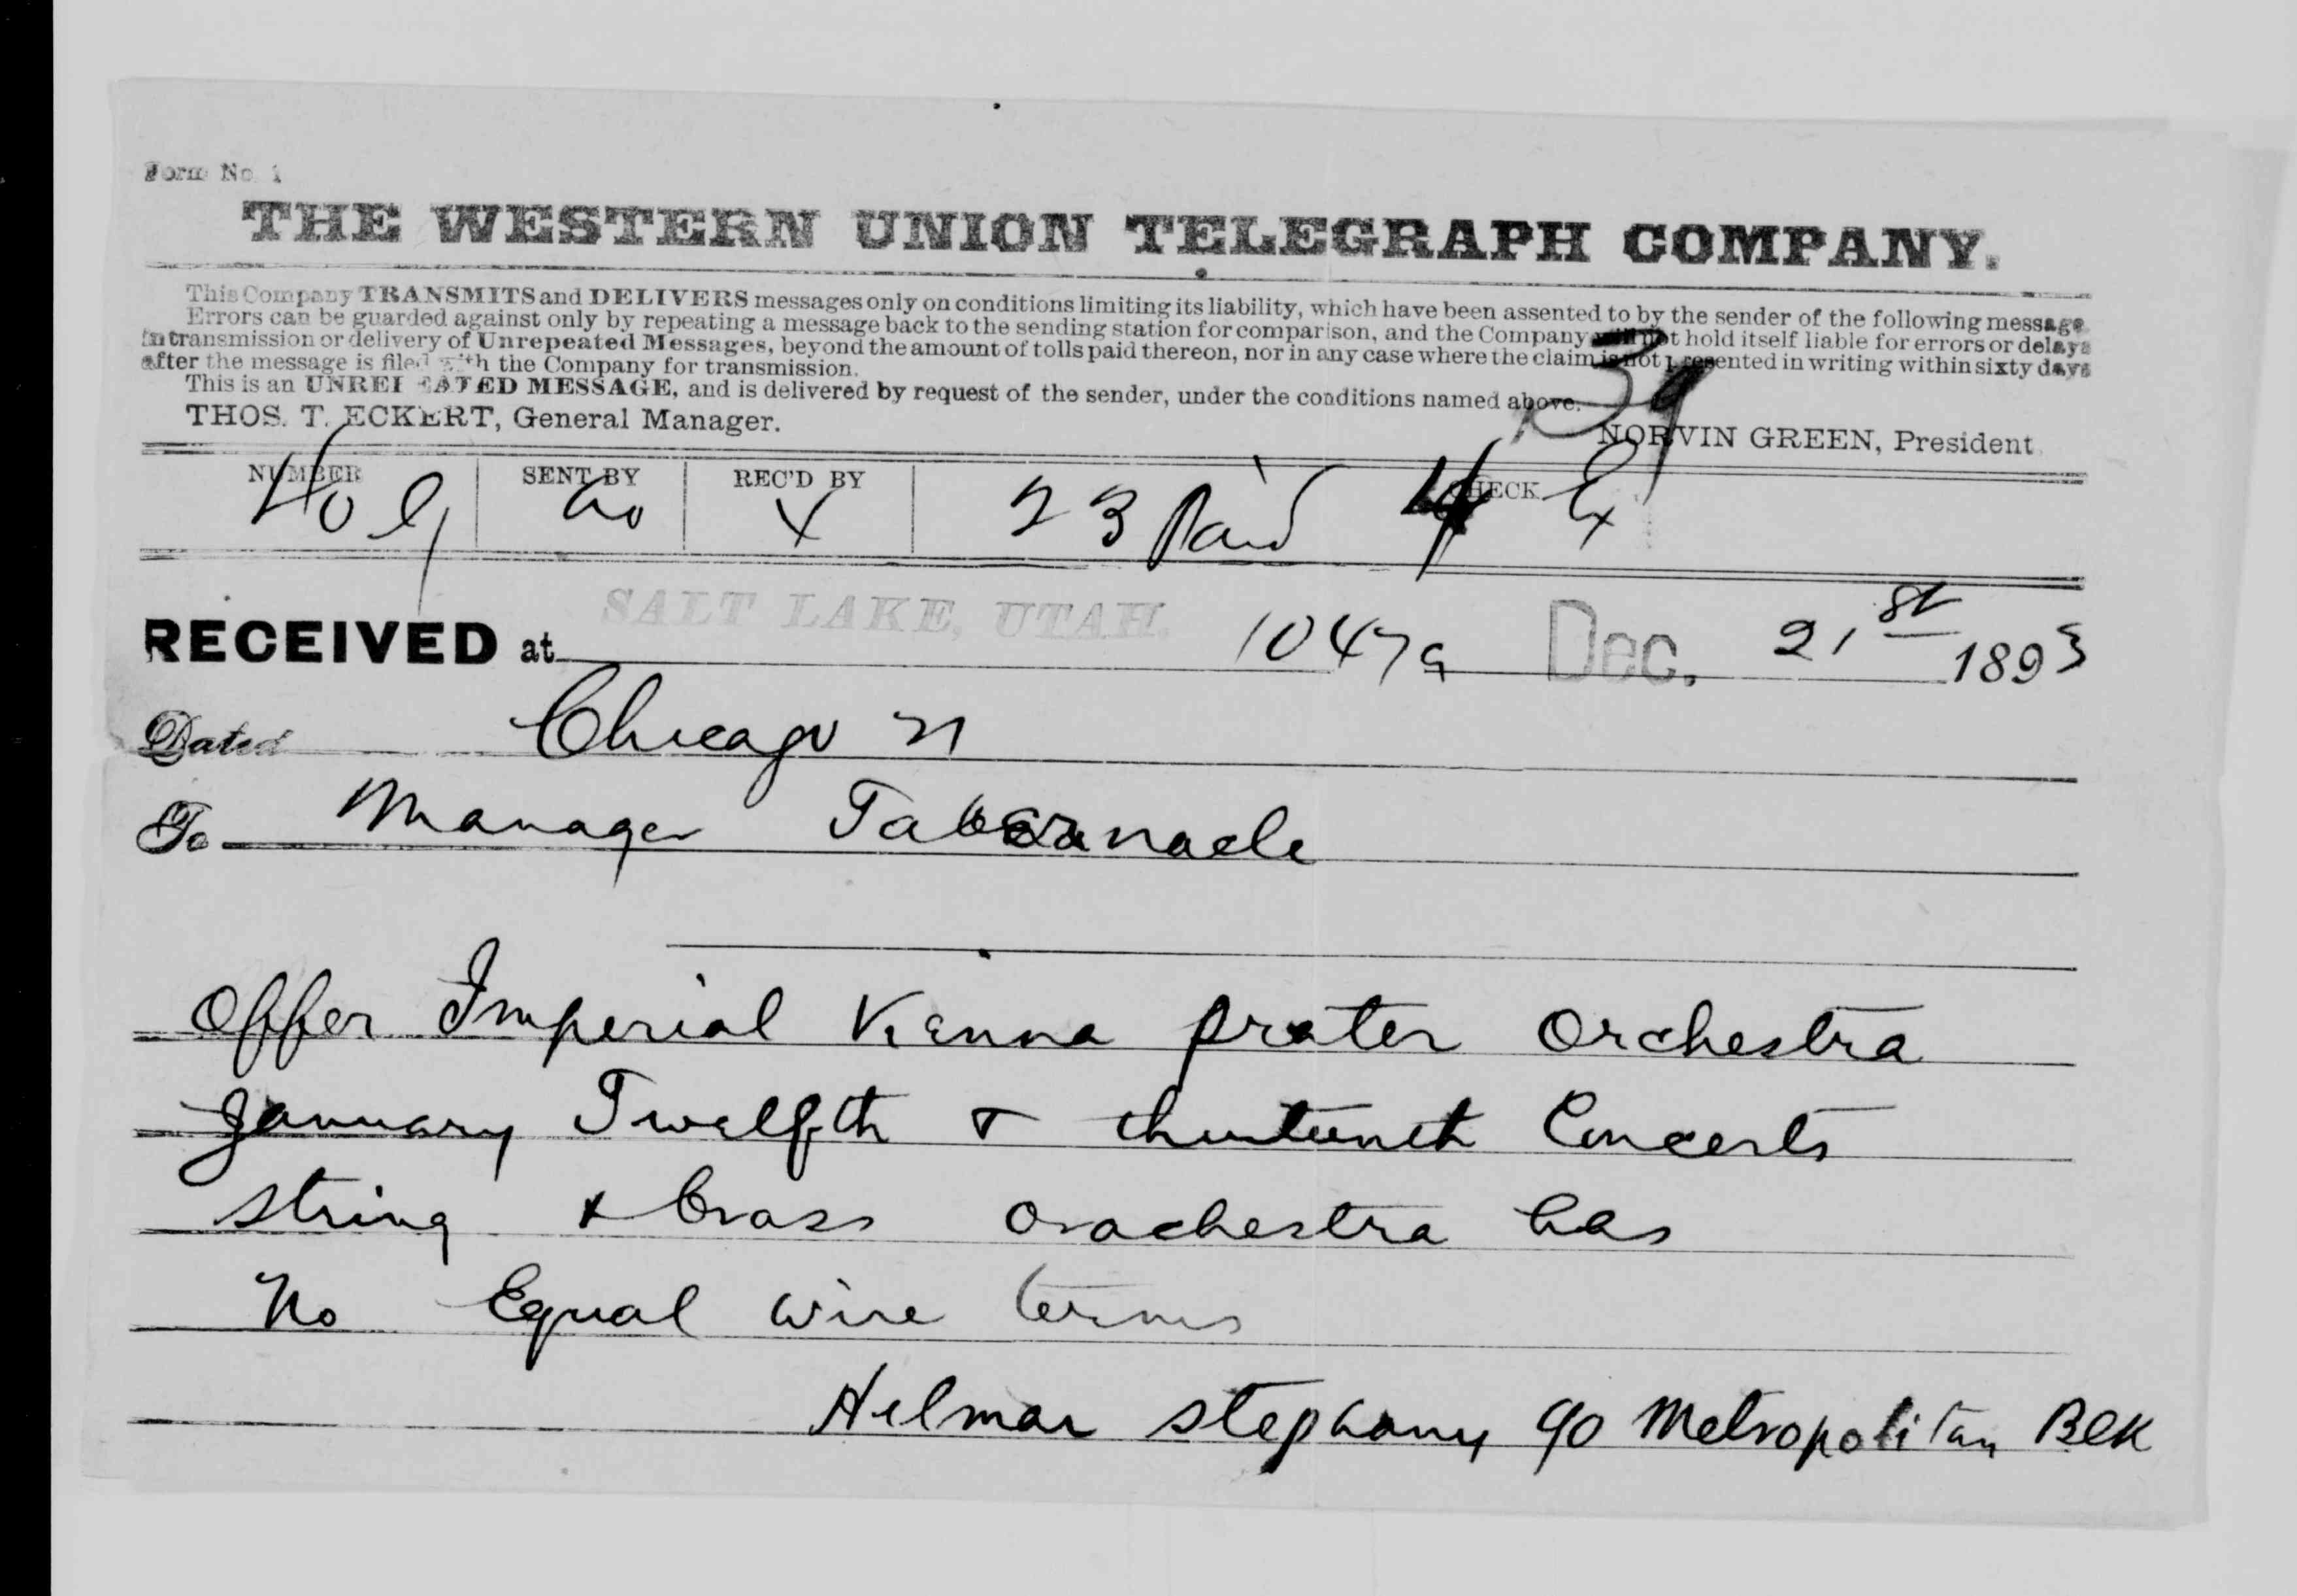 Form No 1
THE WESTERN UNION TELEGRAPH COMPANY.
This Company TRANSMITS and DELIVERS messages only on conditions limiting its liability, which have been assented to by the sender of the following message.
Errors can be guarded against only by repeating a message back to the sending station for comparison, and the Company will not hold itself liable for errors or delays
in transmission or delivery of Unrepeated Messages, beyond the amount of tolls paid thereon, nor in any case where the claim is not presented in writing within sixty days
after the message is filed with the Company for transmission.
This is an UNREPEATED MESSAGE, and is delivered by request of the sender, under the conditions named above.
39
THOS. T. ECKERT, General Manager. NORVIN GREEN, President
NUMBER SENT BY REC'D BY CHECK
23 Paid 4 Ex
RECEIVED at SALT LAKE, UTAH. 1047a Dec. 21st 1893
Dated Chicago 21
To Manager Tabernacle
Offer Imperial Vienna prater Orchestra
January Twelfth & thirteenth Concerts
string & brass orachestra has
No Equal wire terms
Helmar stephany 90 Metropolitan Blk